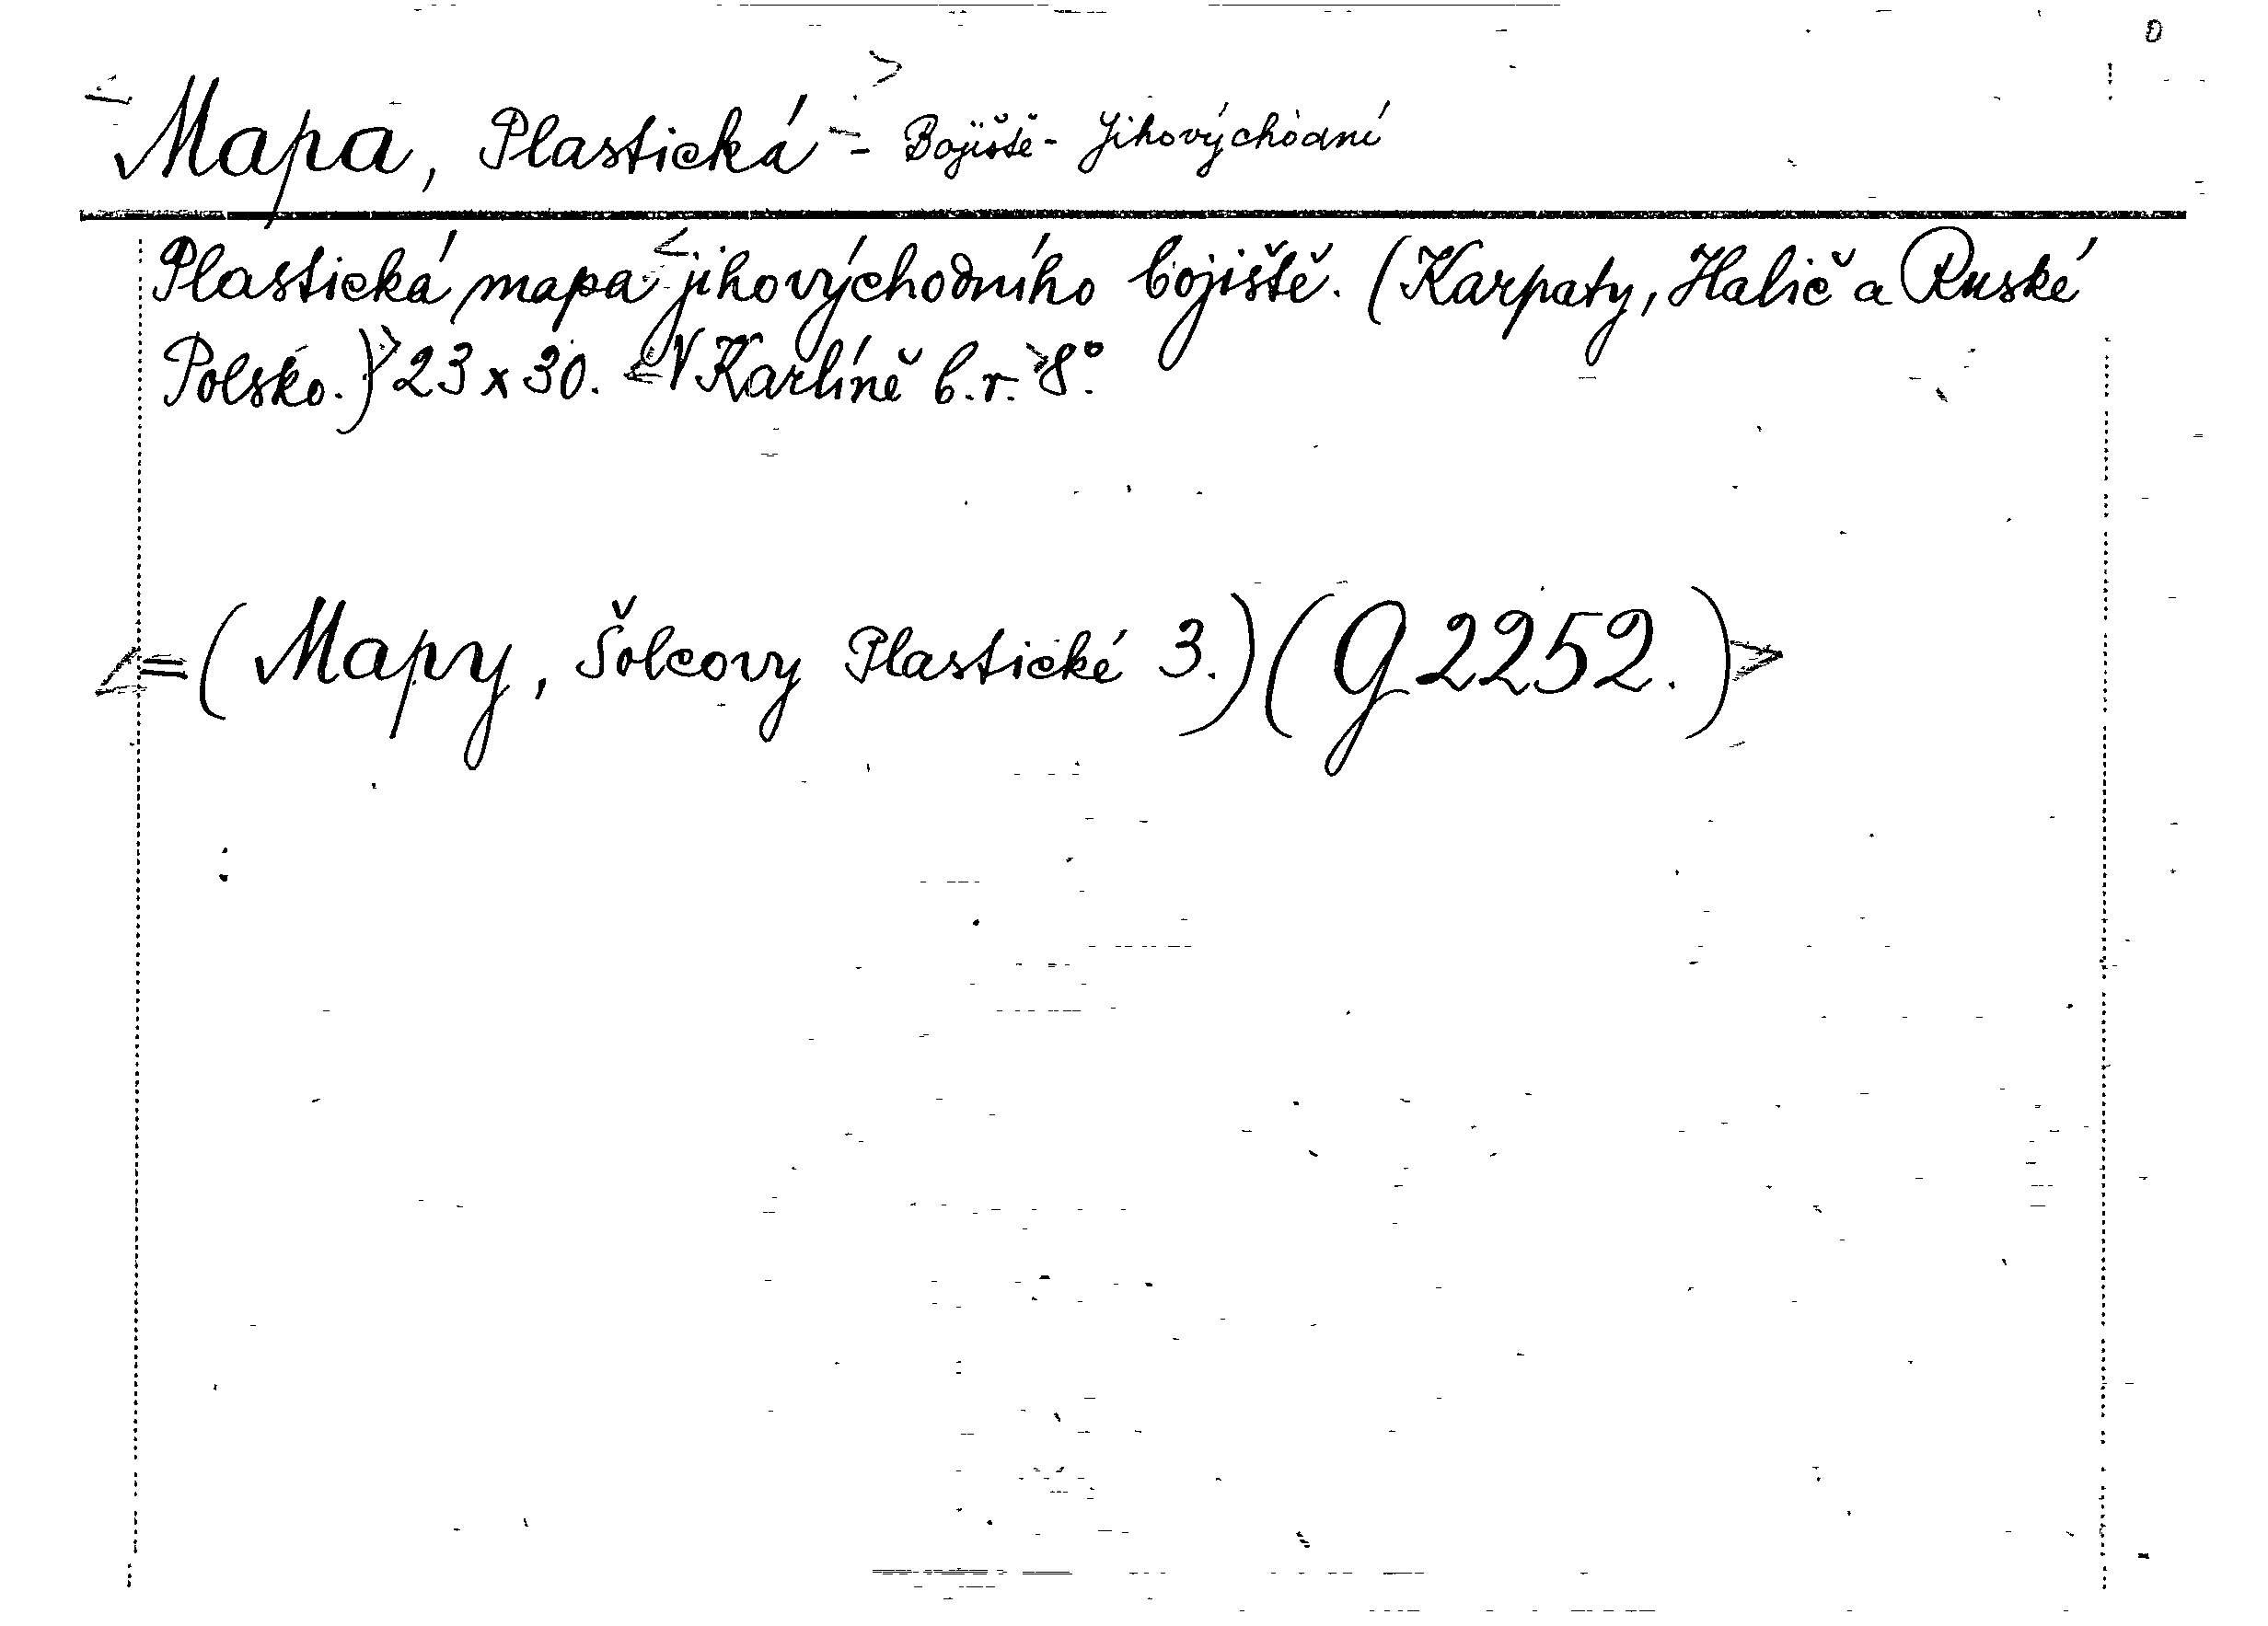 Mapa, Plastická - Bojiště - Jihovýchodní
Plastická mapa jihovýchodního bojiště. (Karpaty, Halič a Ruské
Polsko.) 23 x 30. V Karlíně b.r. 8°.
=(Mapy, Šolcovy Plastické 3.)(G 2252.)